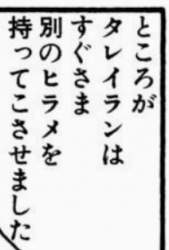 ところが
タレイランは
すぐさま
別のヒラメを
持ってこさせました